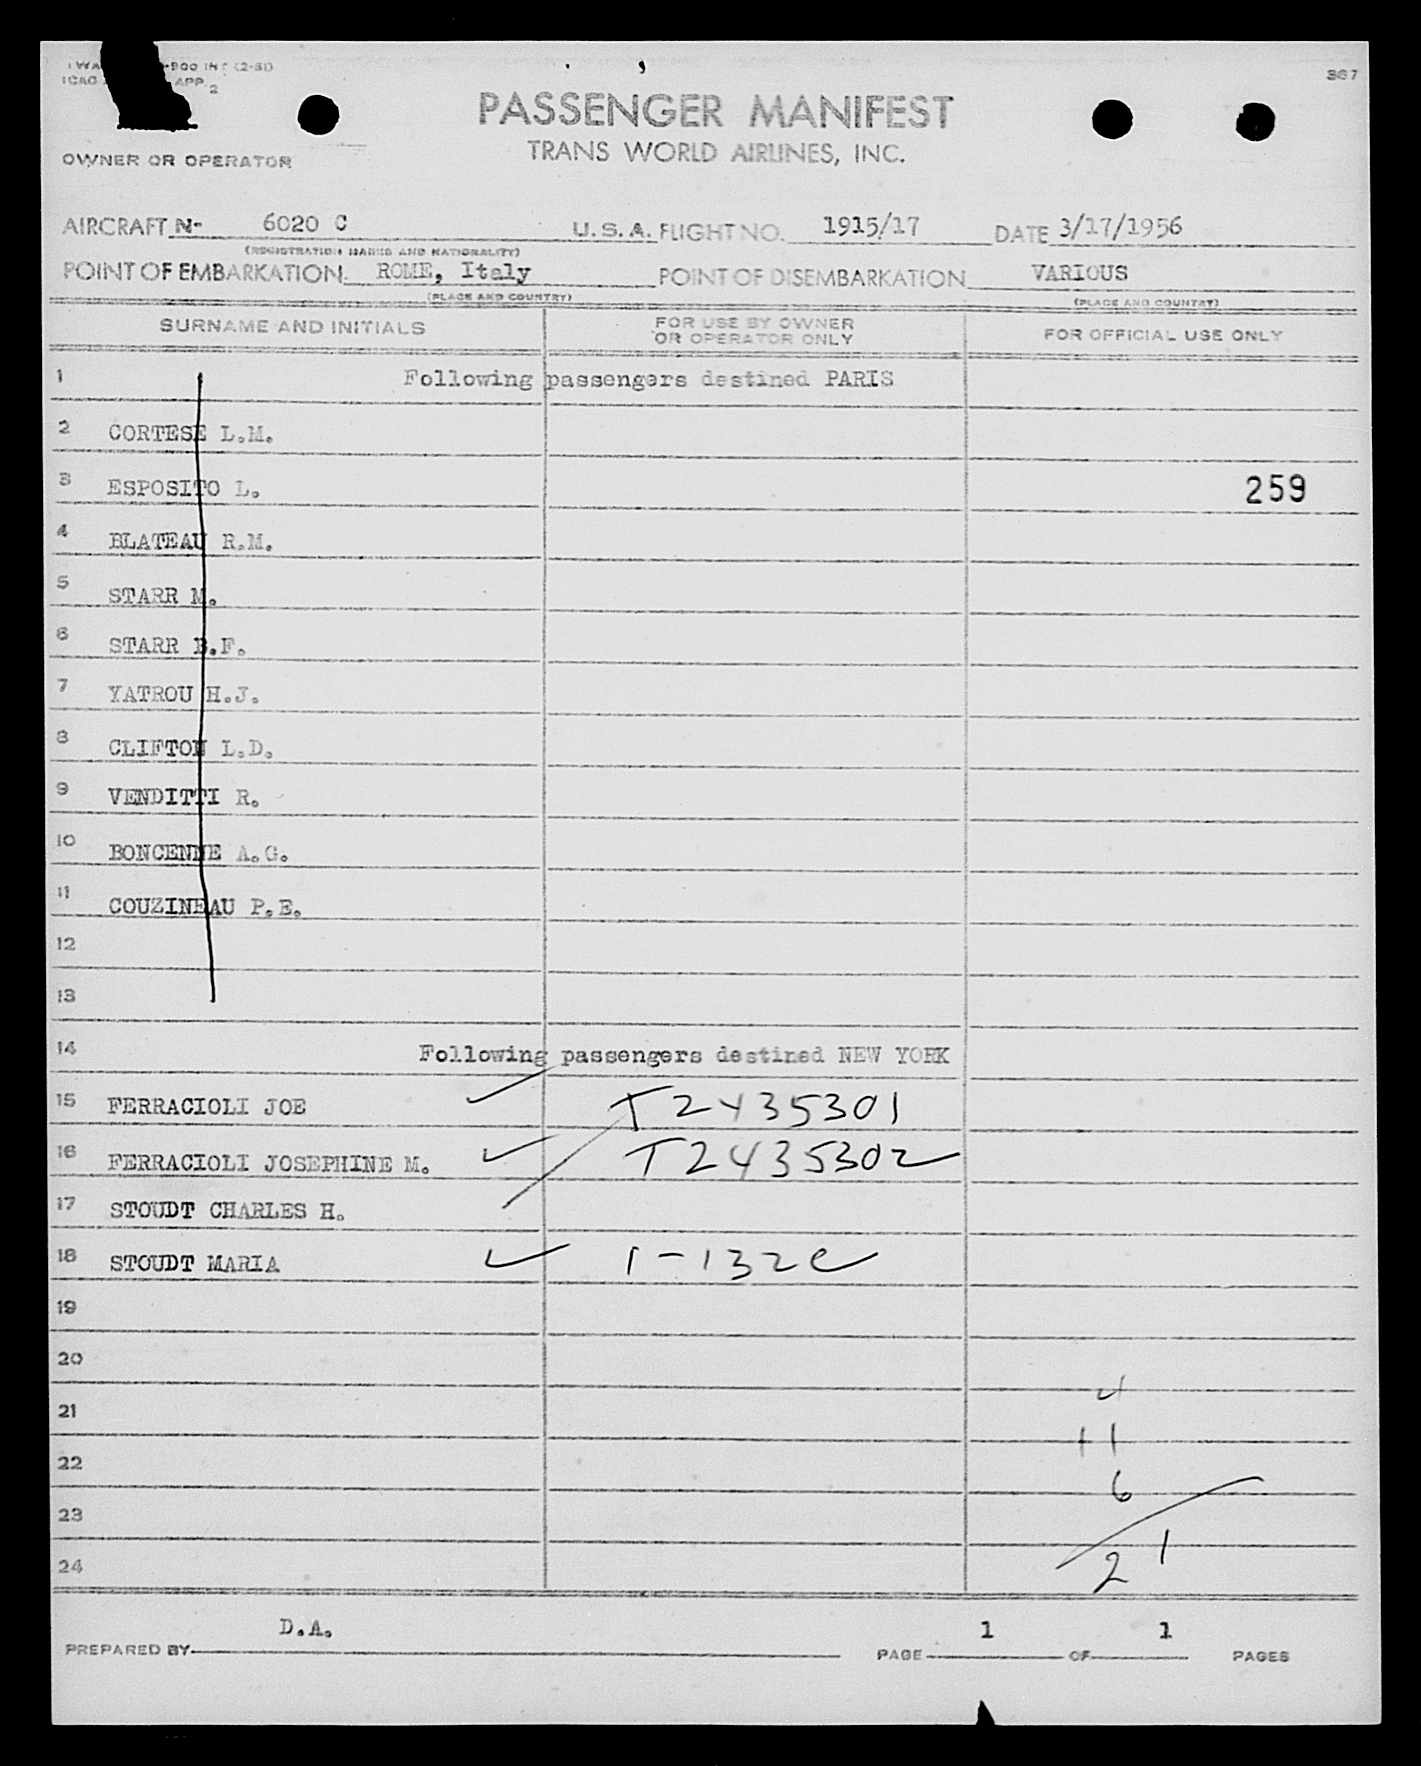 -900 INT (2-51)
367
ICAO APP. 2
PASSENGER MANIFEST
TRANS WORLD AIRLINES, INC.
OWNER OR OPERATOR
AIRCRAFT N- 6020 C U.S.A. FLIGHT NO. 1915/17 DATE 3/17/1956
(REGISTRATION MARKS AND NATIONALITY)
POINT OF EMBARKATION ROME, Italy POINT OF DISEMBARKATION VARIOUS
(PLACE AND COUNTRY) (PLACE AND COUNTRY)
SURNAME AND INITIALS FOR USE BY OWNER OR OPERATOR ONLY FOR OFFICIAL USE ONLY
1 Following passengers destined PARIS
2 CORTESE L.M.
3 ESPOSITO L. 259
4 BLATEAU R.M.
5 STARR M.
6 STARR B.F.
7 YATROU H.J.
8 CLIFTON L.D.
9 VENDITTI R.
10 BONCENNE A.G.
11 COUZINEAU P.E.
12
13
14 Following passengers destined NEW YORK
15 FERRACIOLI JOE T2435301
16 FERRACIOLI JOSEPHINE M. T2435302
17 STOUDT CHARLES H.
18 STOUDT MARIA 1-132
19
20
4
21
11
22
6
23
21
24
D.A. 1 1
PREPARED BY PAGE OF PAGES